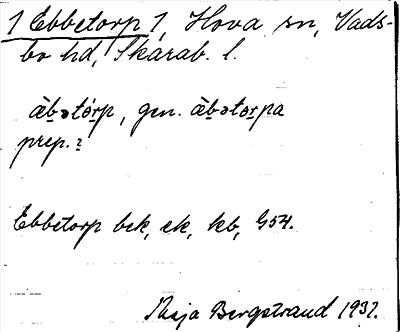 1 Ebbetorp 1, Hova sn, Vads-
bo hd, Skarab. l.
àb̲ətór̲p, gen. àb̲ətor̲pa
prep. ?
Ebbetorp bek, ek, kb, G54.
Maja Bergstrand 1937.